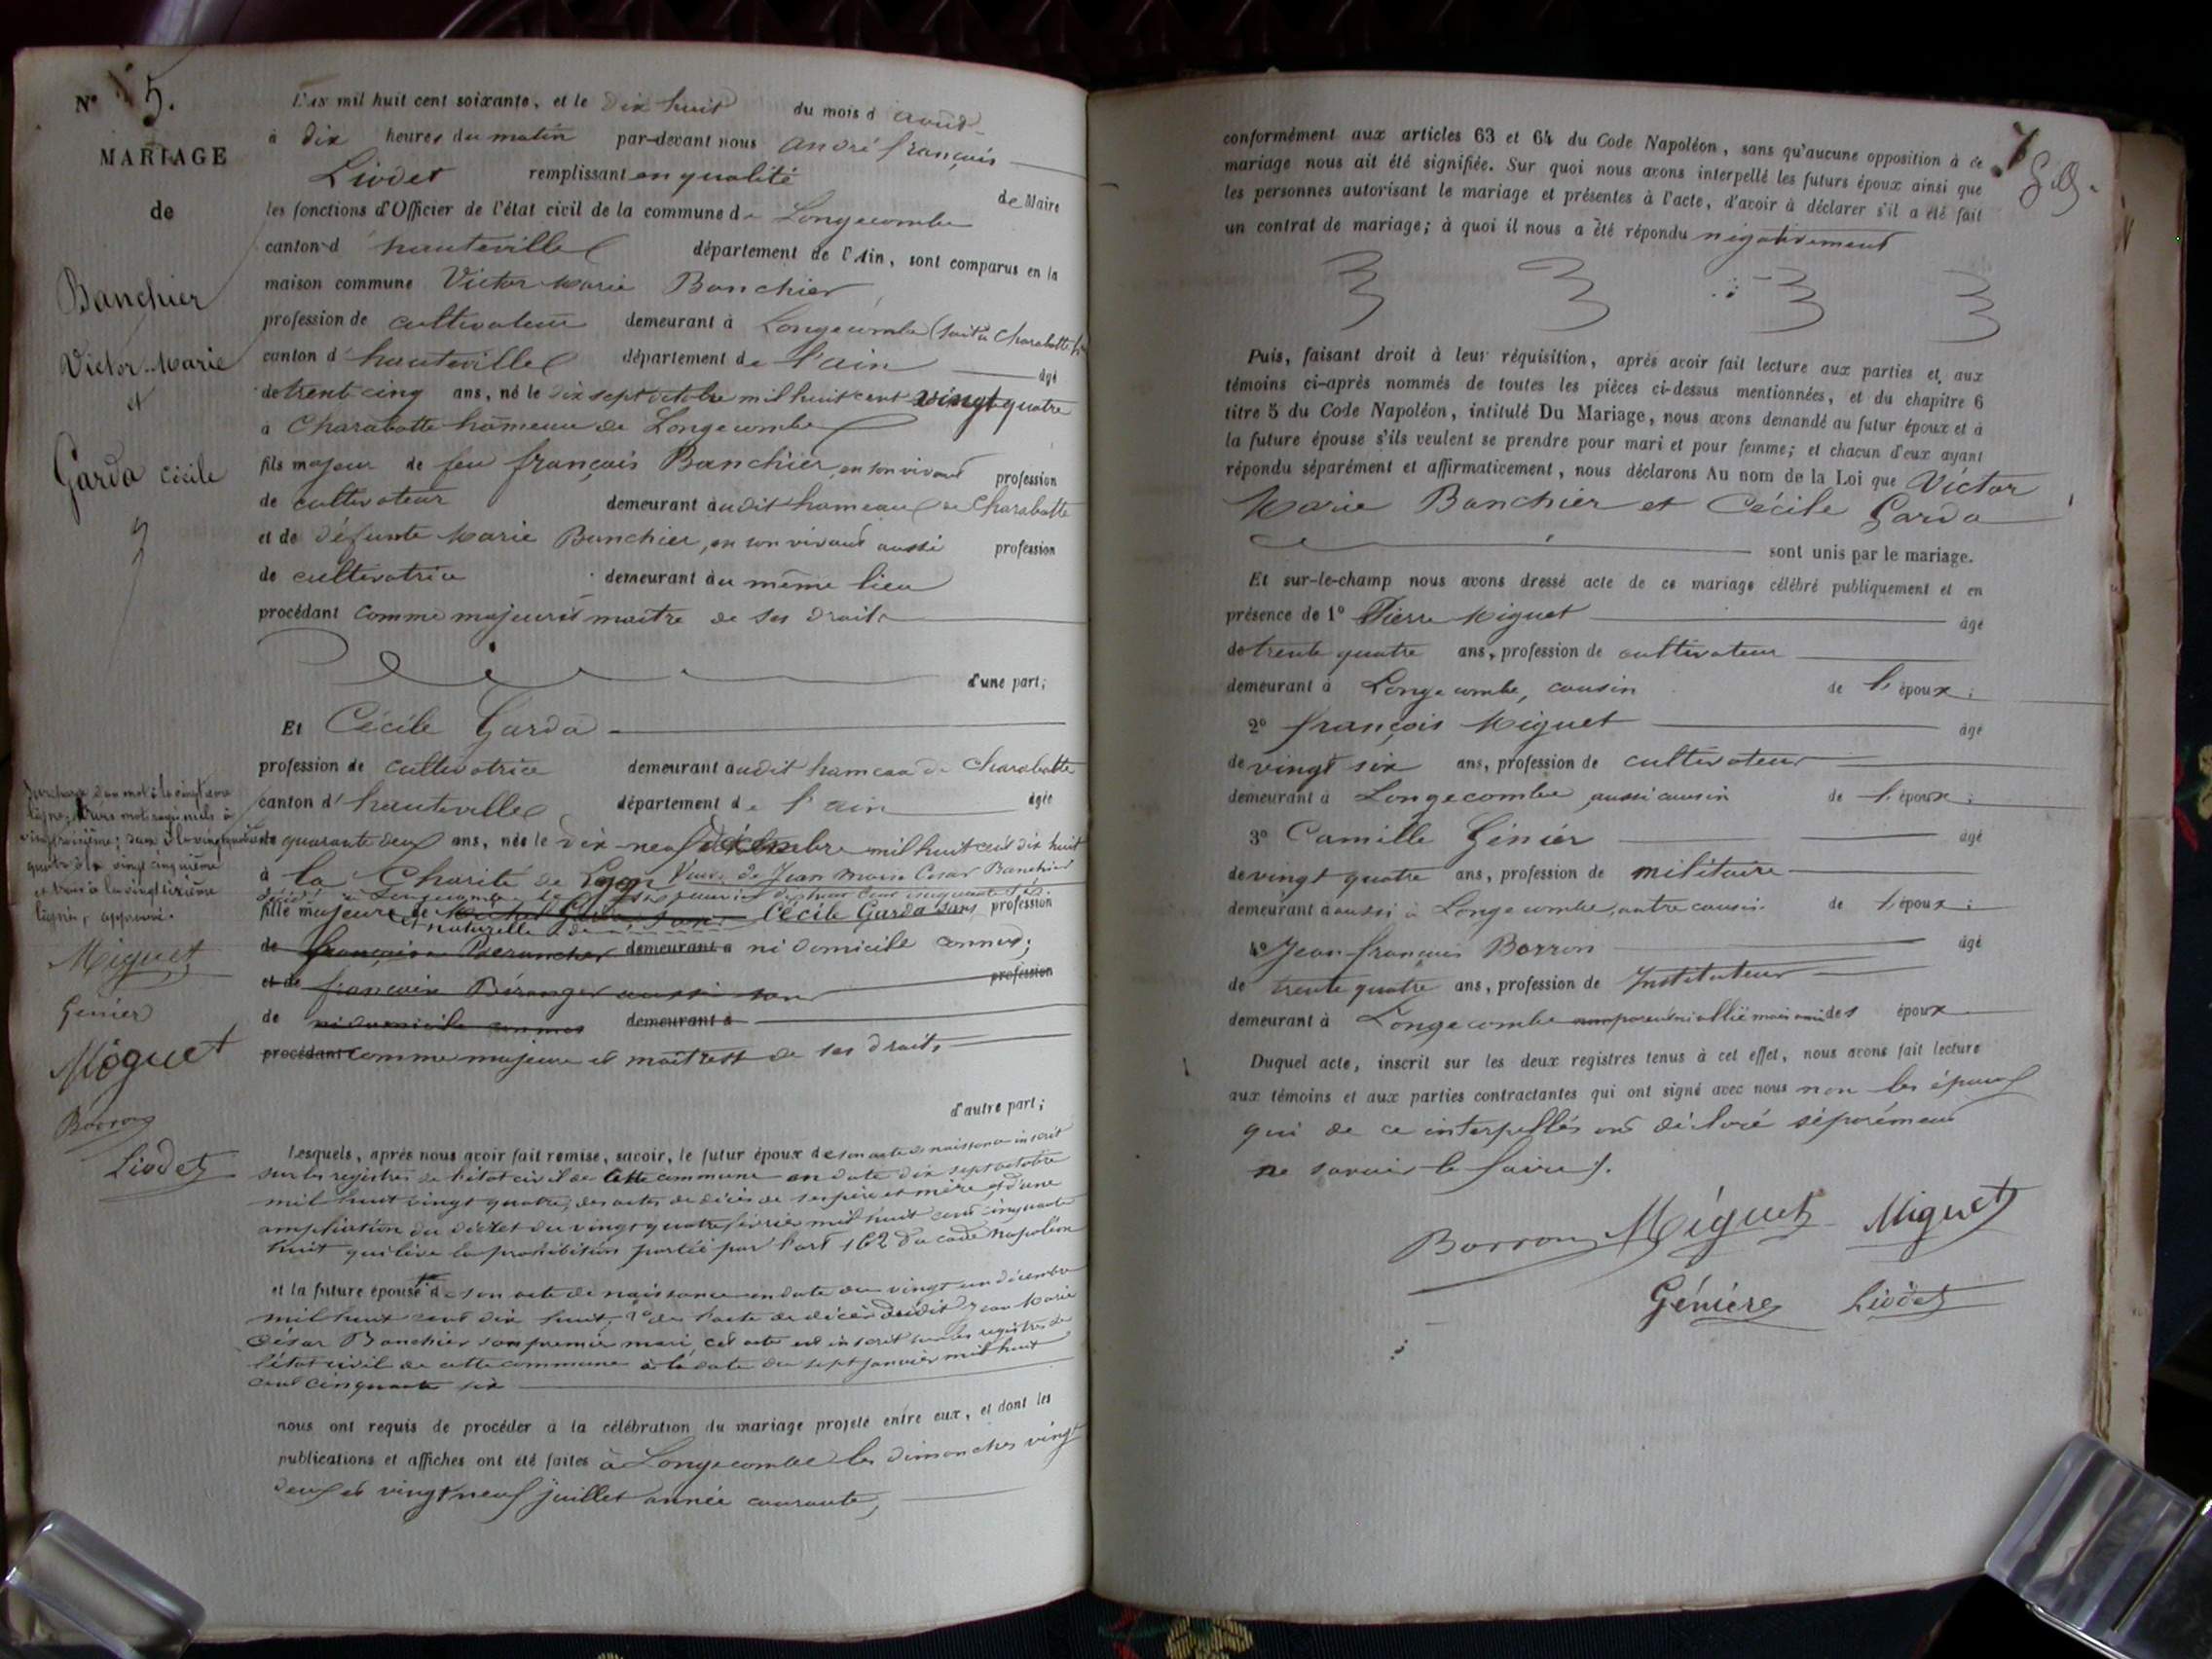 N° 5.
MARIAGE
de
Banchier
Victor-Marie
et
Garda Cécile
L'an mil huit cent soixante, et le dix huit du mois d août
à dix heures du matin par-devant nous andré françois
Liodet remplissant en qualité de Maire
les fonctions d'Officier de l'état civil de la commune de Longecombe
canton d'hauteville département de l'Ain, sont comparus en la
maison commune Victor Marie Banchier
profession de cultivateur demeurant à Longecombe
canton d'hauteville département de l'ain âgé
de trente cinq ans, né le dix sept octobre mil huit cent vingt quatre
à Charabotte hameau de Longecombe
fils majeur de feu françois Banchier, en son vivant profession
de cultivateur demeurant audit hameau de Charabotte
et de défunte Marie Banchier, en son vivant aussi profession
de cultivatrice demeurant au même lieu
procédant comme majeur et maitre de ses droits
d'une part;
Et Cécile Garda
profession de cultivatrice demeurant audit hameau de Charabotte
canton d'hauteville département de l'ain âgée
de quarante deux ans, née le dix-neuf décembre mil huit cent dix huit
à la Charité de Lyon Veuve de Jean Marie César Banchier
fille majeure de Cécile Garda sans profession
et naturelle
de françoise demeurant à ni domicile connus;
et de françoise Béranger aussi sans profession
de ni domicile connus demeurant à
procédant comme majeure et maitresse de ses droits
d'autre part;
Surcharge d'un mot à la vingtième
ligne; trois mots rayés nuls à
vingt troisième; deux à la vingt quatrième
quatre à la vingt cinquième
et trois à la vingt sixième
ligne, approuvé.
Miguet
Génier
Miguet
Borron
Liodet
Lesquels, après nous avoir fait remise, savoir, le futur époux de son acte de naissance inscrit
sur les registres de l'état civil de cette commune en date dix sept octobre
mil huit vingt quatre; des actes de décès de ses père et mère et d'une
ampliation du décret du vingt quatre février mil huit cent cinquante
huit qui lève la prohibition portée par l'art 162 du code napoléon
et la future épouse de son acte de naissance en date du vingt un décembre
mil huit cent dix huit, 2° de l'acte de décès dudit Jean Marie
César Banchier son premier mari, cet acte est inscrit sur les registres de
l'état civil de cette commune à la date du sept janvier mil huit
cent cinquante six
nous ont requis de procéder à la célébration du mariage projeté entre eux, et dont les
publications et affiches ont été faites à Longecombe les dimanches vingt
deux et vingt neuf juillet année courante,
7
conformément aux articles 63 et 64 du Code Napoléon, sans qu'aucune opposition à ce
mariage nous ait été signifiée. Sur quoi nous avons interpellé les futurs époux ainsi que
les personnes autorisant le mariage et présentes à l'acte, d'avoir à déclarer s'il a été fait
un contrat de mariage; à quoi il nous a été répondu négativement
Puis, faisant droit à leur réquisition, après avoir fait lecture aux parties et aux
témoins ci-après nommés de toutes les pièces ci-dessus mentionnées, et du chapitre 6
titre 5 du Code Napoléon, intitulé Du Mariage, nous avons demandé au futur époux et à
la future épouse s'ils veulent se prendre pour mari et pour femme; et chacun d'eux ayant
répondu séparément et affirmativement, nous déclarons Au nom de la Loi que Victor
Marie Banchier et Cécile Garda
sont unis par le mariage.
Et sur-le-champ nous avons dressé acte de ce mariage célébré publiquement et en
présence de 1° Pierre Miguet âgé
de trente quatre ans, profession de cultivateur
demeurant à Longecombe, cousin de l'époux;
2° françois Miguet âgé
de vingt six ans, profession de cultivateur
demeurant à Longecombe aussi cousin de l'époux;
3° Camille Génier âgé
de vingt quatre ans, profession de militaire
demeurant à aussi à Longecombe, autre cousin de l'époux;
4° Jean-françois Borron âgé
de trente quatre ans, profession de Instituteur
demeurant à Longecombe non parent ni allié mais ami des époux
Duquel acte, inscrit sur les deux registres tenus à cet effet, nous avons fait lecture
aux témoins et aux parties contractantes qui ont signé avec nous non les époux
qui de ce interpellés ont déclaré séparément
ne savoir le faire ./.
Borron Miguet Miguet
Génière Liodet